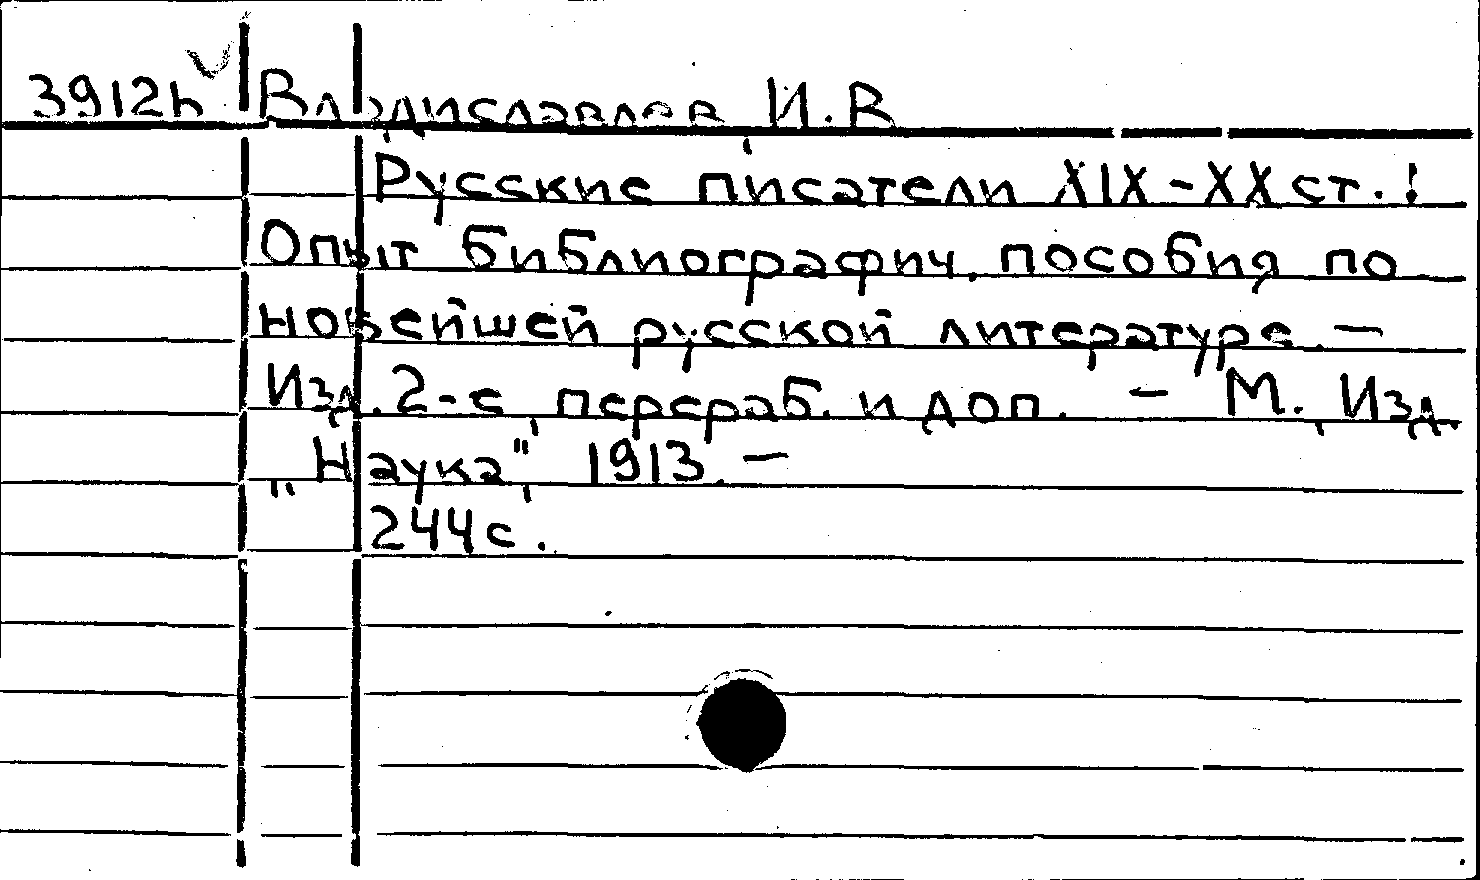 3912h Владиславлев, И.В.
Русские писатели XIX-XX ст.:
Опыт библиографич. пособия по
новейшей русской литературе. –
Изд. 2-е, перераб. и доп. – М., Изд.
„Наука", 1913. –
244 с.